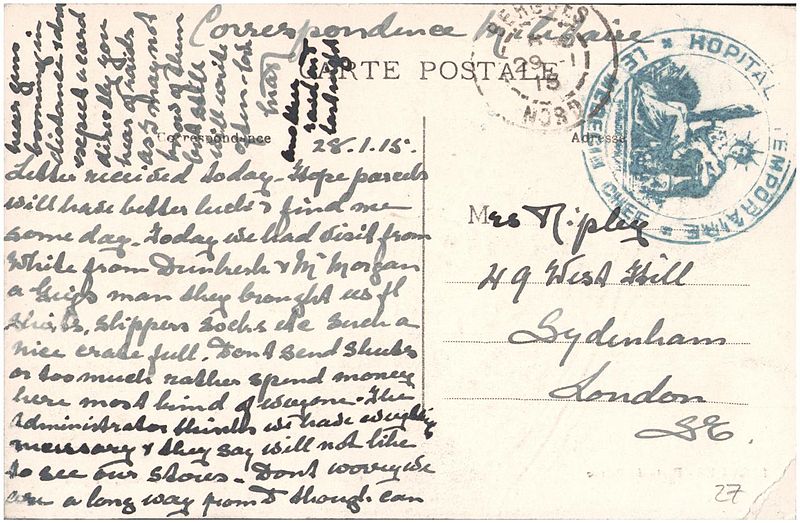 Correspondence Militaire
CARTE POSTALE
Correspondance
Adresse
BERGUES
29 -1
15
NORD
HOPITAL TEMPORAIRE
LE MEDECIN CHEF
28.1.15.
Letter received today - Hope parcels
will have better luck & find me
some day. Today we had visit from
White from Dunkirk & Mr Morgan
a Guys man they brought us
shirts, slippers socks etc such a
nice crate full. Dont send shirts
or too much rather spend money
here most kind of everyone - The
Administrator thinks we have everything
necessary & they say will not like
to see our stores - Dont worry we
are a long way from though can
hear guns
booming in
distance &
expect a card
directly you
hear of raids
as I may not
know of them
but still
will write
another
raid
last night
Mrs Ripley
49 West Hill
Sydenham
London
S.E.
27